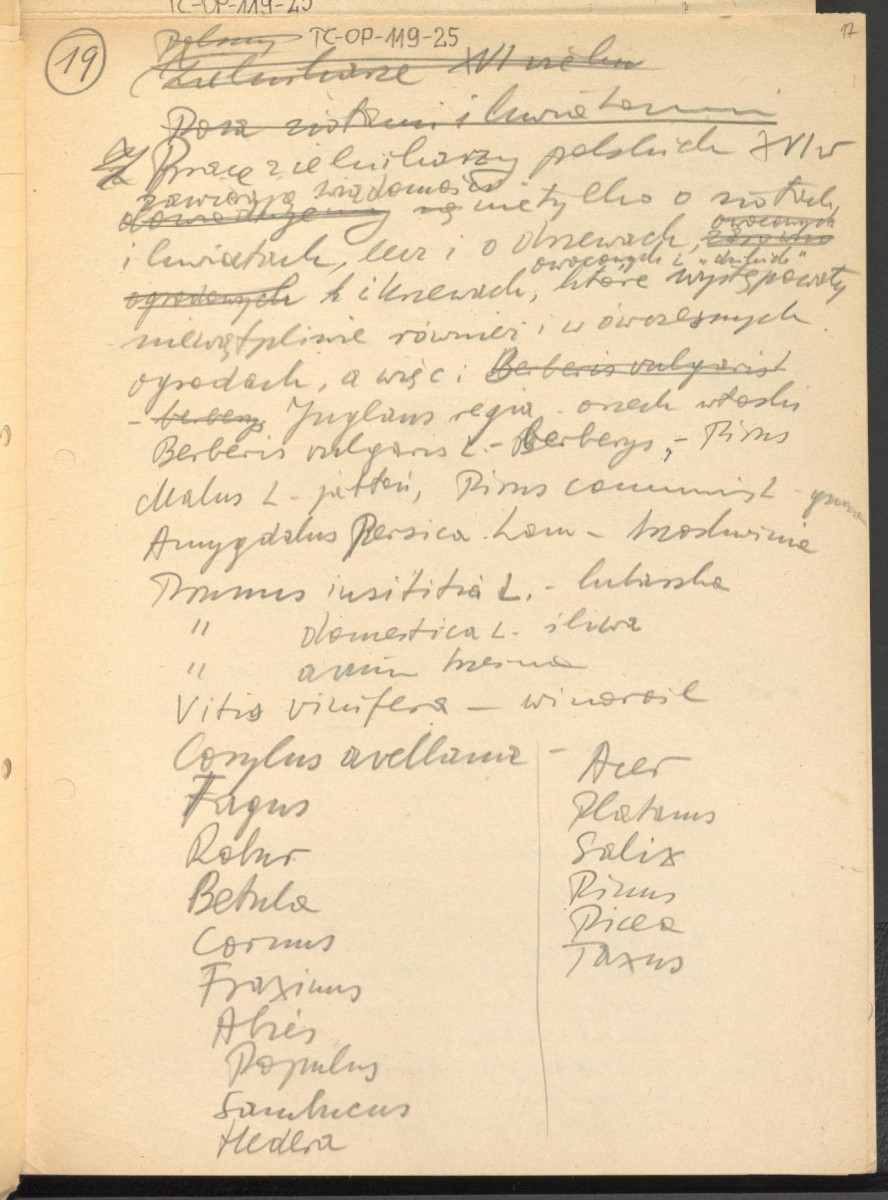 TC-OP-119-25
17
19
Polscy TC-OP-119-25
Zielnikarze XVI wieku
Poza ziołami i kwiatami
Prace zielnikarzy polskich XVI w
zawierają wiadomości
nie tylko o ziołach
owocowych
i kwiatach, lecz i o drzewach,
owocowych i „dzikich"
ogrodowych i krzewach, które występowały
niewątpliwie również i w ówczesnych
ogrodach, a więc: Berberis vulgaris L
- berberys Juglans regia - orzech włoski
Berberis vulgaris L. - Berberys, - Pirus
Malus L - jabłoń, Pirus communis L - grusza
Amygdalus Persica Lam - brzoskwinia
Prunus insititia L. - lubaszka
" domestica L. śliwa
" avium trześnia
Vitis vinifera - winorośl
Corylus avellana -
Fagus
Robur
Betula
Cornus
Fraxinus
Abies
Populus
Sambucus
Hedera
Acer
Platanus
Salix
Pinus
Picea
Taxus